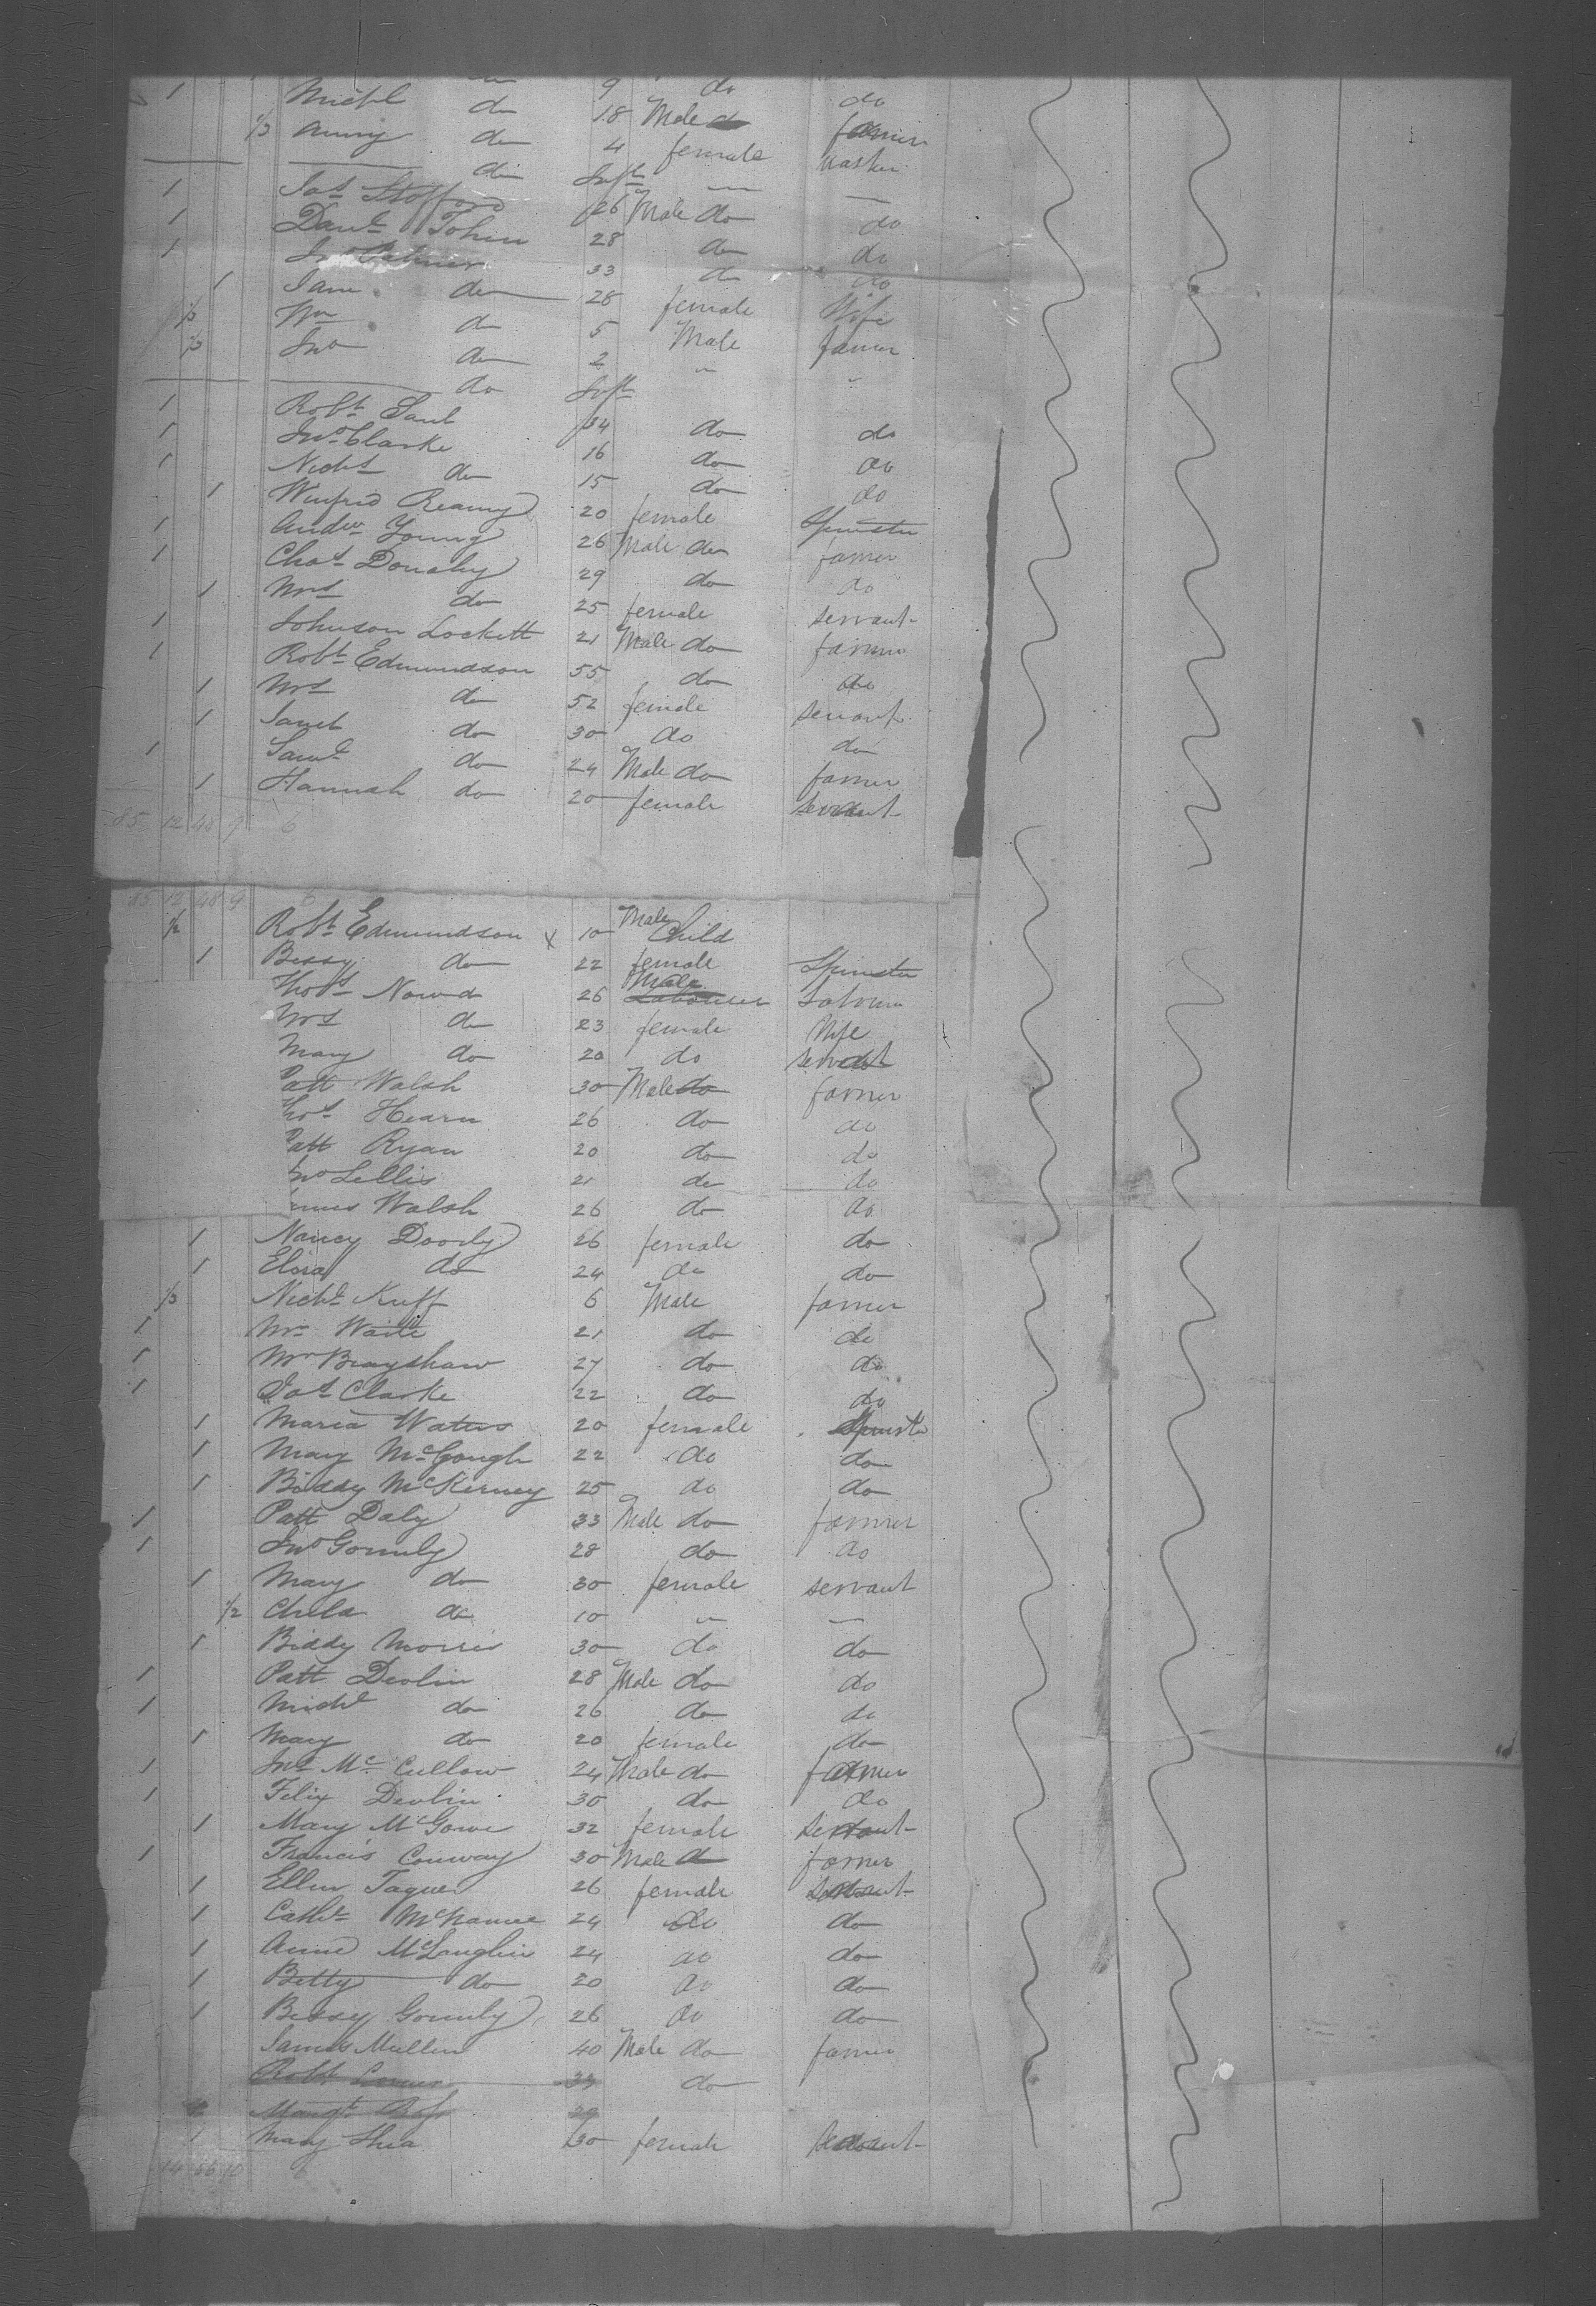 do 9 do do
1 Michl do 18 Male do farmer
1/2 Anny do 4 female
do Inft
1 Jas Stafford 26 Male do do
1 Danl Tobin 28 do do
1 Jno 33 do do
1 Jane do 28 female Wife
1/2 Wm do 5 Male farmer
1/2 Jno do 2 " "
do Inft
1 Robt Saul 34 do do
1 Jno Clarke 16 do do
1 Nichs do 15 do do
1 Winfrid Reamy 20 female Spinster
1 Andw Young 26 Male do farmer
1 Chas Donahy 29 do do
1 Mrs do 25 female servant
1 Johnson Lockett 21 Male do farmer
1 Robt Edmundson 55 do do
1 Mrs do 52 female servant
1 Janet do 30 do do
1 Saml do 24 Male do farmer
1 Hannah do 20 female servant
85 12 48 9 6
85 12 48 9 6
1/2 Robt Edmundson x 10 Male Child
1 Bessy do 22 female Spinster
Thos Nowd 26 Male Labourer
Mrs do 23 female Wife
Mary do 20 do servant
Patt Walsh 30 Male do farmer
Thos Hearn 26 do do
Patt Ryan 20 do do
Jno Lellis 21 do do
James Walsh 26 do do
1 Nancy Doody 26 female do
1 Eliza do 24 do do
1/2 Nichs Kuff 6 Male farmer
1 Mr Waite 21 do do
1 Mr Brayshaw 27 do do
1 Jas Clarke 22 do do
1 Maria Waters 20 female Spinster
1 Mary McGough 22 do do
1 Biddy McKerney 25 do do
1 Patt Daly 33 Male do farmer
1 Jno Gormly 28 do do
1 Mary do 30 female servant
1/2 Child do 10 " "
1 Biddy Morris 30 do do
1 Patt Devlin 28 Male do do
1 Michl do 26 do do
1 Mary do 20 female do
1 Jno McCullow 24 Male do farmer
1 Felix Devlin 30 do do
1 Mary McGowe 32 female servant
1 Francis Conway 30 Male do farmer
1 Ellen Taguer 26 female servant
1 Cathe McNamee 24 do do
1 Anne McLaughlin 24 do do
1 Betty do 20 do do
1 Bessy Gormly 26 do do
James Mullen 40 Male do farmer
Robt 33 do
Margt
1 Mary Shea 30 female servant
14 56 10 6